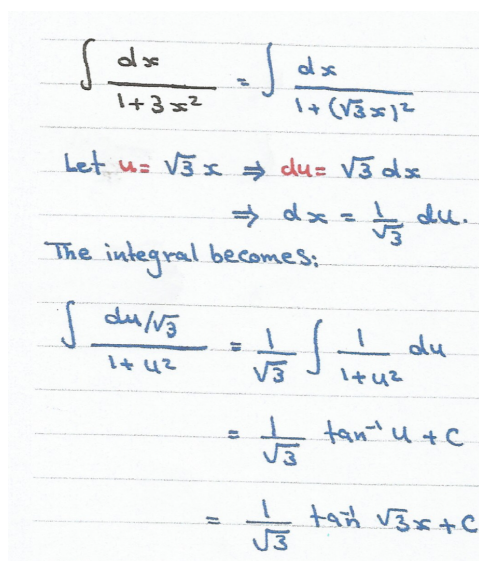 ∫ dx / (1+3x²) = ∫ dx / (1+(√3x)²)
Let u= √3 x ⇒ du= √3 dx
⇒ dx = 1/√3 du.
The integral becomes:
∫ (du/√3) / (1+u²) = 1/√3 ∫ 1/(1+u²) du
= 1/√3 tan⁻¹ u + C
= 1/√3 tan⁻¹ √3x + C